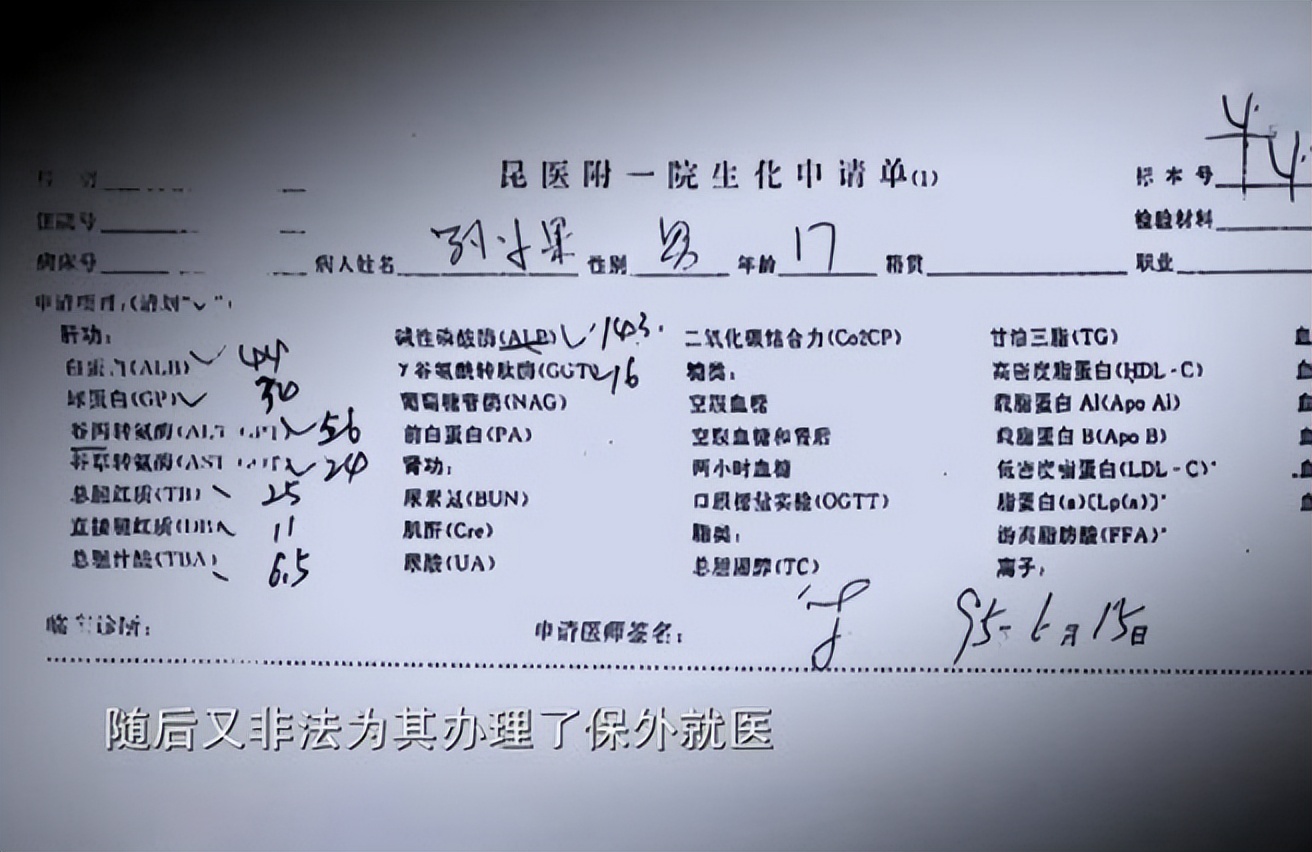 昆医附一院生化申请单(1)
标本号
住院号
检验材料
病床号 病人姓名 孙小果 性别 男 年龄 17 籍贯 职业
申请项目:(请划"✓"):
肝功: 碱性磷酸酶(ALP) ✓ 143. 二氧化碳结合力(Co2CP) 甘油三脂(TG)
白蛋白(ALB) ✓ 44 γ谷氨酰转肽酶(GGT) ✓ 16 糖类: 高密度脂蛋白(HDL-C) 血
球蛋白(GP) ✓ 30 葡萄糖苷酶(NAG) 空腹血糖 载脂蛋白AI(Apo Ai) 血
谷丙转氨酶(ALT ✓ 56 前白蛋白(PA) 空腹血糖和餐后 载脂蛋白B(Apo B) 血
谷草转氨酶(AST ✓ 24 肾功: 两小时血糖 低密度脂蛋白(LDL-C)* 血
总胆红质(TB) 25 尿素氮(BUN) 口服糖量实验(OGTT) 脂蛋白(a)[Lp(a)]* 血
直接胆红质(DB 11 肌酐(Cre) 脂类: 游离脂肪酸(FFA)*
总胆汁酸(TBA) 6.5 尿酸(UA) 总胆固醇(TC) 离子:
临床诊断: 申请医师签名: 95-6月15日
随后又非法为其办理了保外就医